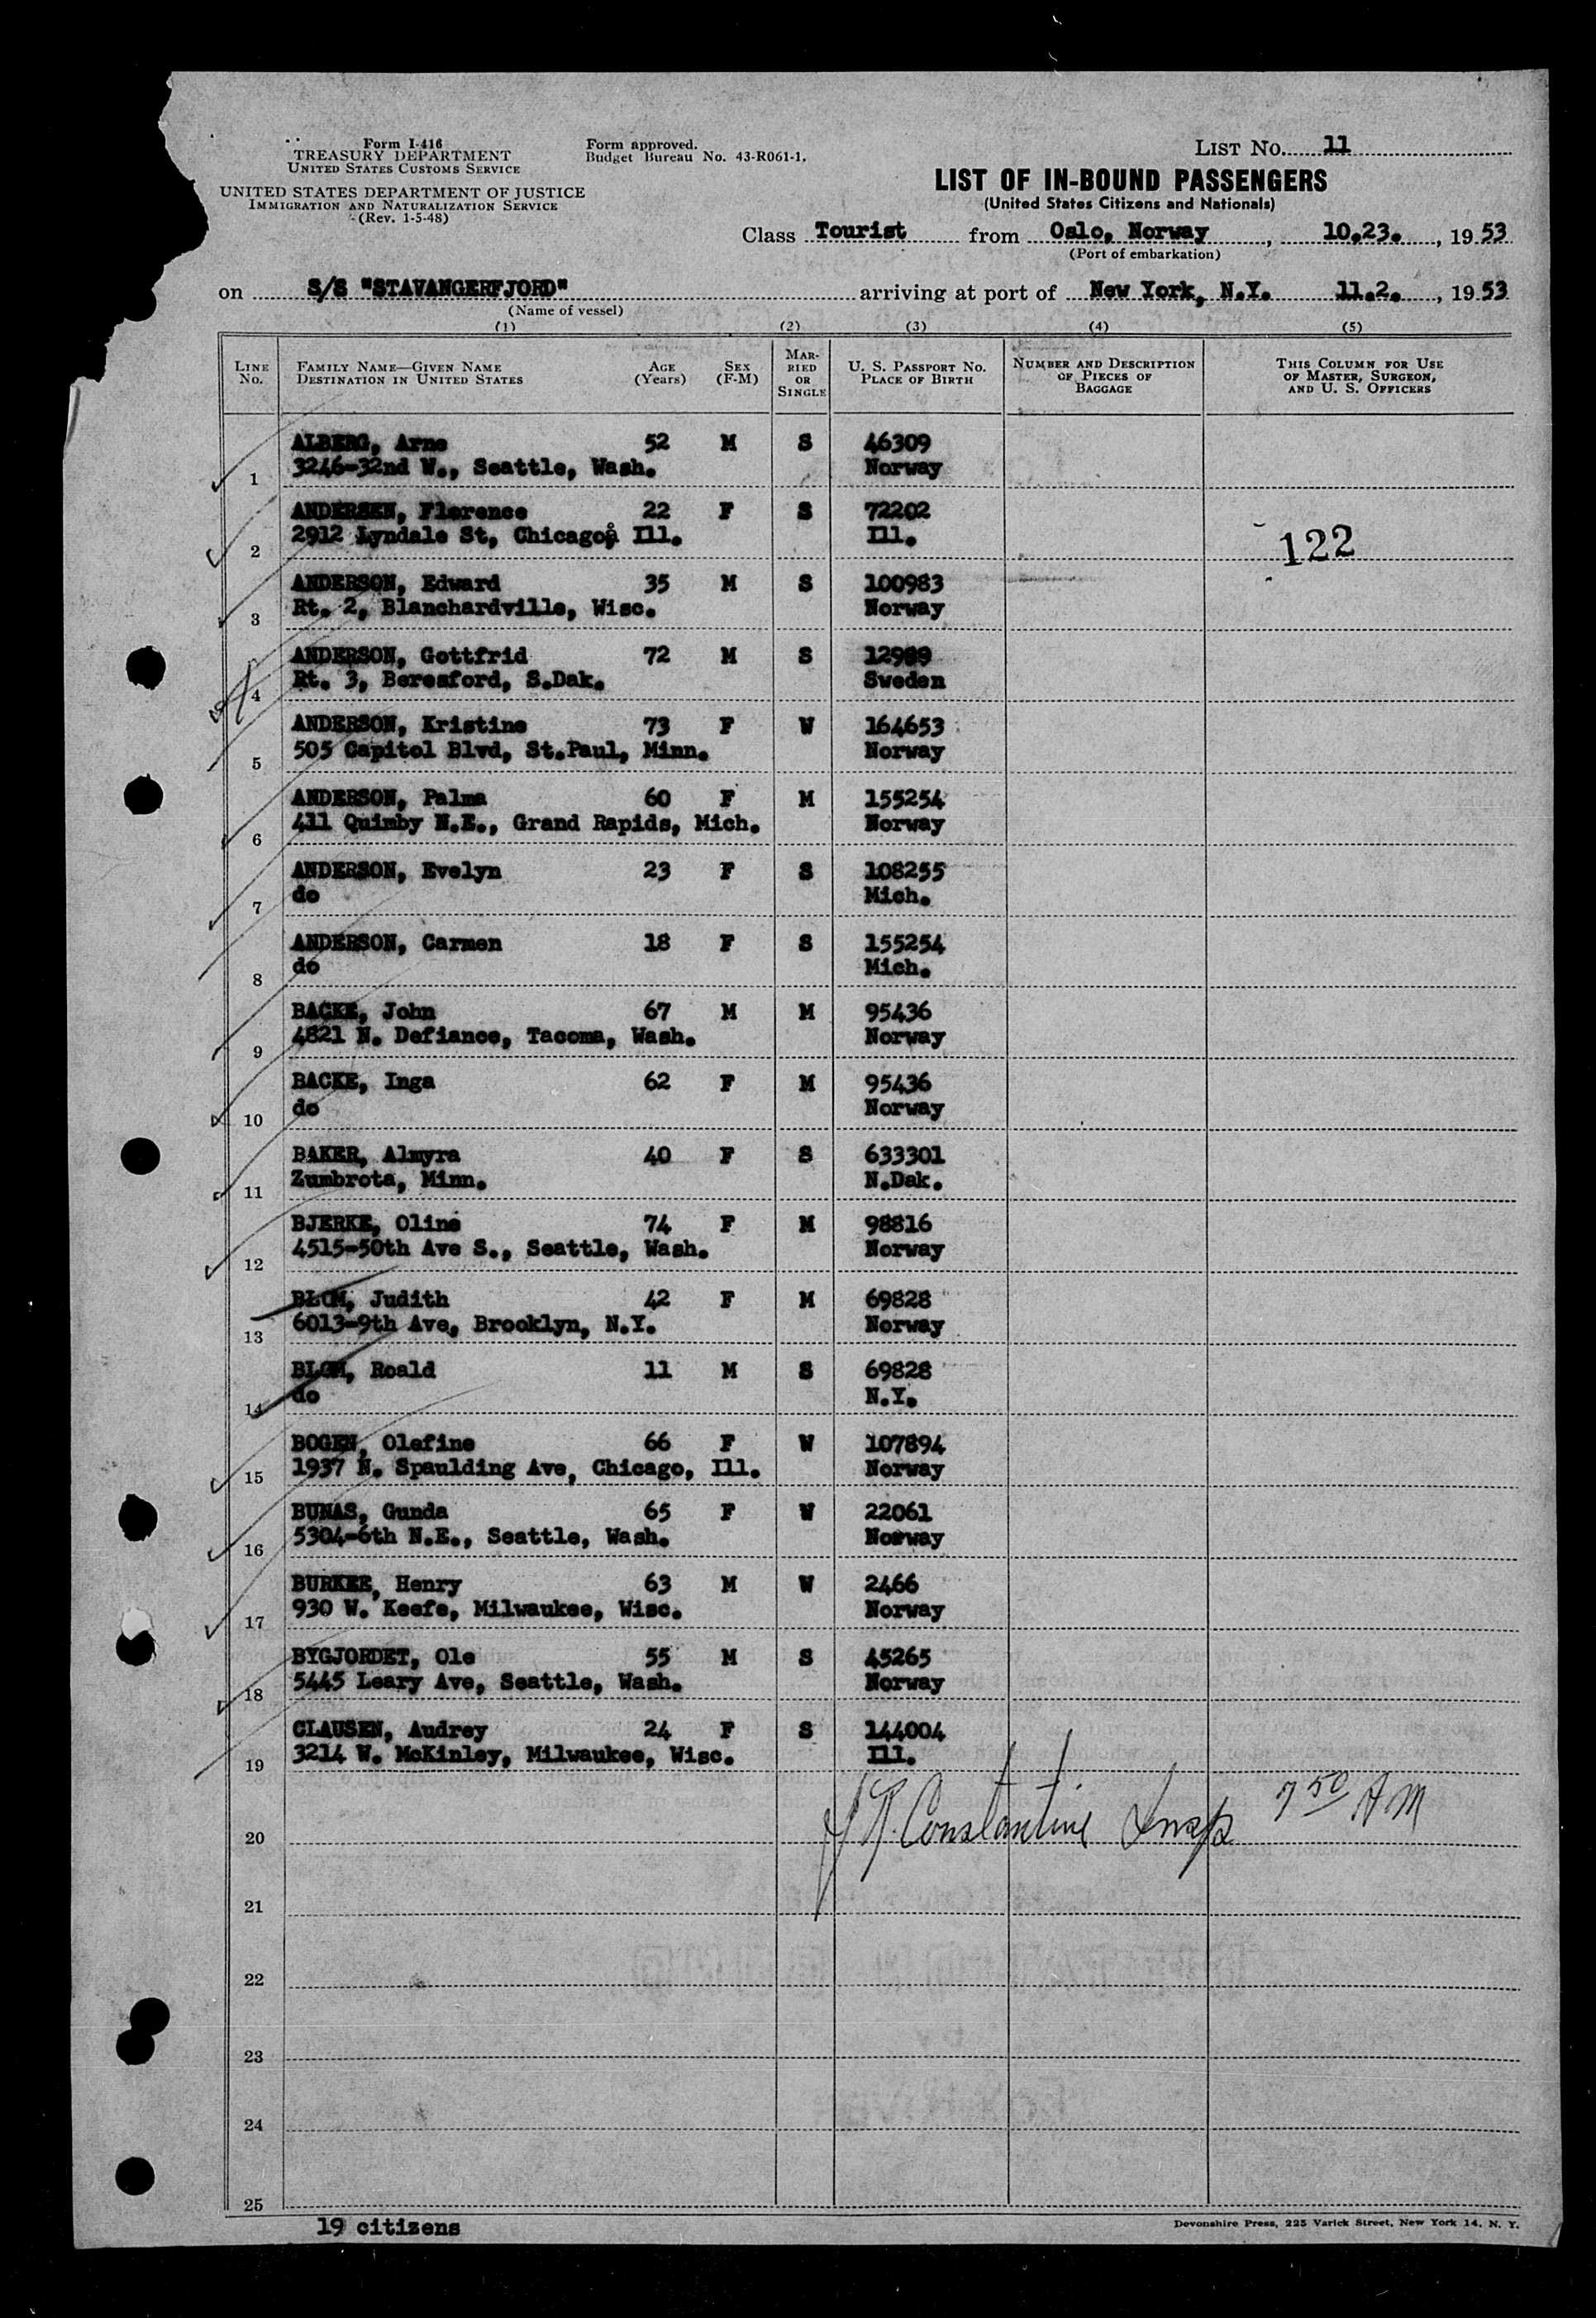 Form I-416
TREASURY DEPARTMENT
UNITED STATES CUSTOMS SERVICE
UNITED STATES DEPARTMENT OF JUSTICE
IMMIGRATION AND NATURALIZATION SERVICE
(Rev. 1-5-48)
Form approved.
Budget Bureau No. 43-R061-1.
LIST No. 11
LIST OF IN-BOUND PASSENGERS
(United States Citizens and Nationals)
Class Tourist from Oslo, Norway, 10.23., 1953
(Port of embarkation)
on S/S "STAVANGERFJORD" arriving at port of New York, N.Y. 11.2., 1953
(Name of vessel)
(1) (2) (3) (4) (5)
LINE No. FAMILY NAME—GIVEN NAME DESTINATION IN UNITED STATES AGE (Years) SEX (F-M) MARRIED OR SINGLE U. S. PASSPORT No. PLACE OF BIRTH NUMBER AND DESCRIPTION OF PIECES OF BAGGAGE THIS COLUMN FOR USE OF MASTER, SURGEON, AND U. S. OFFICERS
ALBERG, Arne 52 M S 46309
1 3246-32nd W., Seattle, Wash. Norway
ANDERSEN, Florence 22 F S 72202
2 2912 Lyndale St, Chicago, Ill. Ill.
122
ANDERSON, Edward 35 M S 100983
3 Rt. 2, Blanchardville, Wisc. Norway
ANDERSON, Gottfrid 72 M S
4 Rt. 3, Beresford, S.Dak. Sweden
ANDERSON, Kristine 73 F W 164653
5 505 Capitol Blvd, St.Paul, Minn. Norway
ANDERSON, Palma 60 F M 155254
6 411 Quimby N.E., Grand Rapids, Mich. Norway
ANDERSON, Evelyn 23 F S 108255
7 do Mich.
ANDERSON, Carmen 18 F S 155254
8 do Mich.
BACKE, John 67 M M 95436
9 4821 N. Defiance, Tacoma, Wash. Norway
BACKE, Inga 62 F M 95436
10 do Norway
BAKER, Almyra 40 F S 633301
11 Zumbrota, Minn. N.Dak.
BJERKE, Oline 74 F M 98816
12 4515-50th Ave S., Seattle, Wash. Norway
BLOM, Judith 42 F M 69828
13 6013-9th Ave, Brooklyn, N.Y. Norway
BLOM, Roald 11 M S 69828
14 do N.Y.
BOGEN, Olefine 66 F W 107894
15 1937 N. Spaulding Ave, Chicago, Ill. Norway
BUNAS, Gunda 65 F W 22061
16 5304-6th N.E., Seattle, Wash. Norway
BURKEE, Henry 63 M W 2466
17 930 W. Keefe, Milwaukee, Wisc. Norway
BYGJORDET, Ole 55 M S 45265
18 5445 Leary Ave, Seattle, Wash. Norway
CLAUSEN, Audrey 24 F S 144004
19 3214 W. McKinley, Milwaukee, Wisc. Ill.
Constantine Insp 7 50 AM
20
21
22
23
24
25
19 citizens
Devonshire Press, 225 Varick Street, New York 14, N. Y.